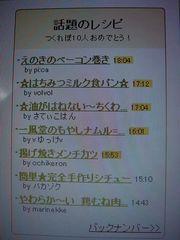 話題のレシピ
つくれぽ10人おめでとう！
・えのきのベーコン巻き 18:04
by pica
・☆はちみつミルク食パン☆ 17:12
by volvol
・☆油がはねない〜ちくわ… 17:04
by さてぃこはん
・一風堂のもやしナムル=… 16:01
by ∀ゆっけ∀
・揚げ焼きメンチカツ 15:53
by ochikeron
・簡単★完全手作りシチュー 15:10
by バカゾク
・やわらか〜い 鶏むね肉… 14:43
by marinekke
バックナンバー>>